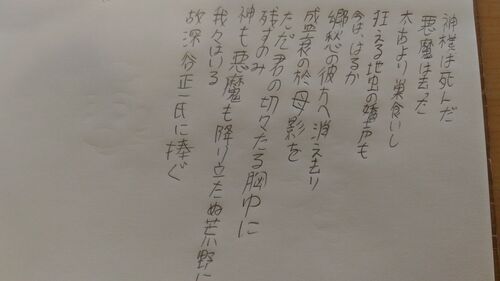 神様は死んだ
悪魔は去った
太古より巣食いし
狂える地虫の嬌声も
今は、はるか
郷愁の彼方へ消え去り
盛衰の於母影を
ただ君の切々たる胸中に
残すのみ
神も悪魔も降り立たぬ荒野に
我々はいる
故深谷正一氏に捧ぐ